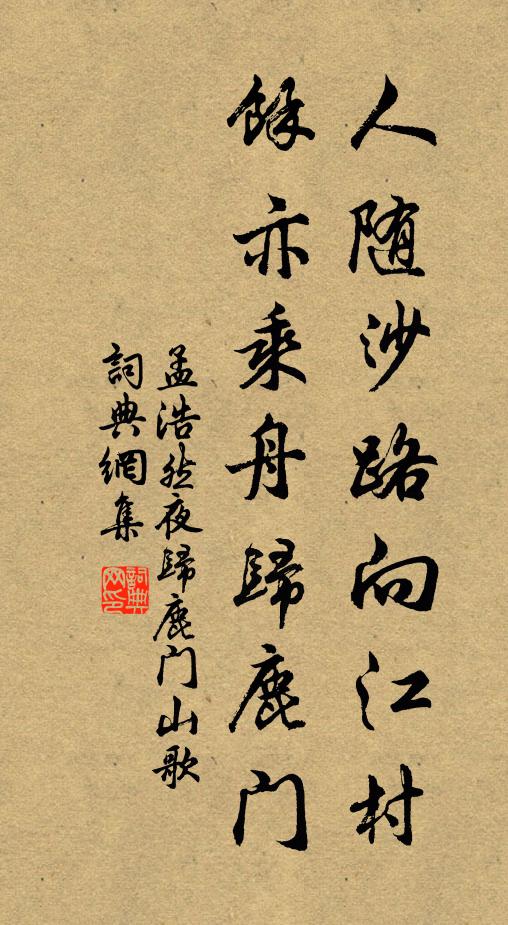 人随沙路向江村
餘亦乘舟歸鹿门
孟浩然夜歸鹿门山歌
詞典網集
詞典网印